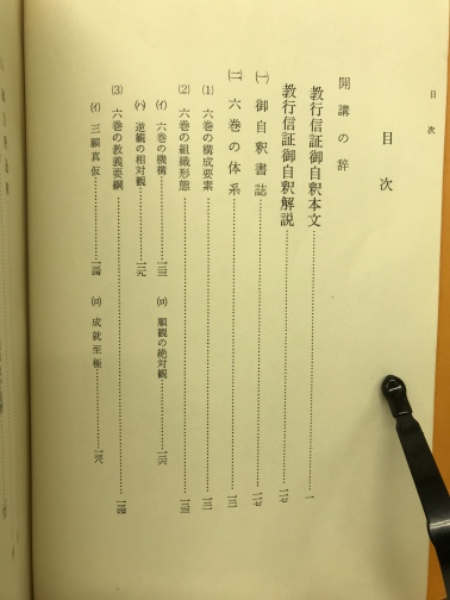 目次
目次
開講の辞
教行信証御自釈本文……一
教行信証御自釈解説……一一七
㈠ 御自釈書誌……一一七
㈡ 六巻の体系……一三一
⑴ 六巻の構成要素……一三一
⑵ 六巻の組織形態……一三三
(イ) 六巻の機構……一三三 (ロ) 順観の絶対観……一三六
(ハ) 逆観の相対観……一三九
⑶ 六巻の教義要綱……一四四
(イ) 三願真仮……一四四 (ロ) 成就至極……